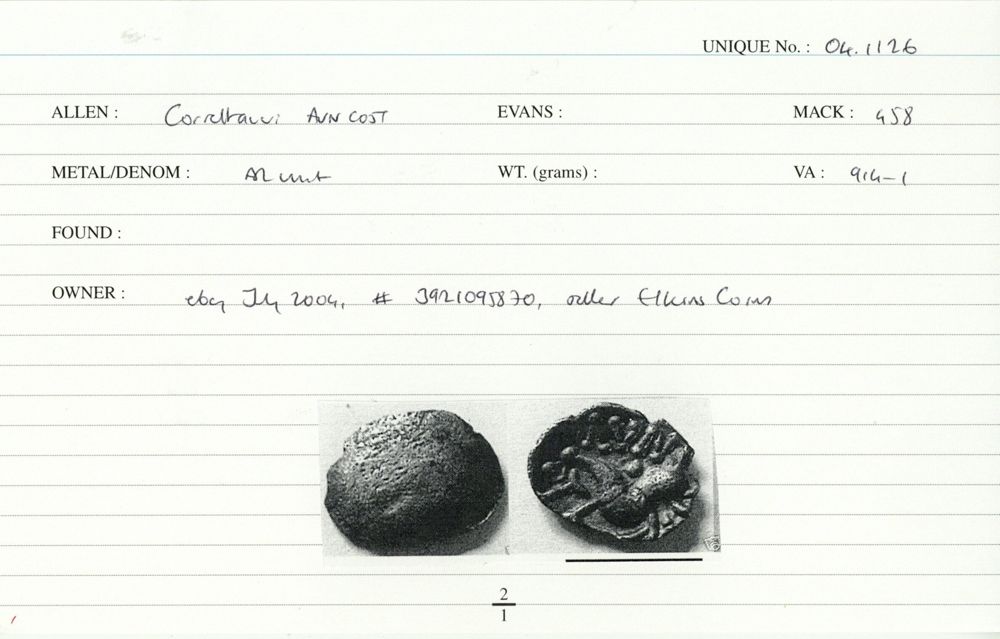 UNIQUE No. : 04.1126
ALLEN : Corieltauvi AVN COST EVANS : MACK : 458
METAL/DENOM : AR unit WT. (grams) : VA : 914-1
FOUND :
OWNER : ebay July 2004, # 3921095870, seller Elkins Coins
2
1